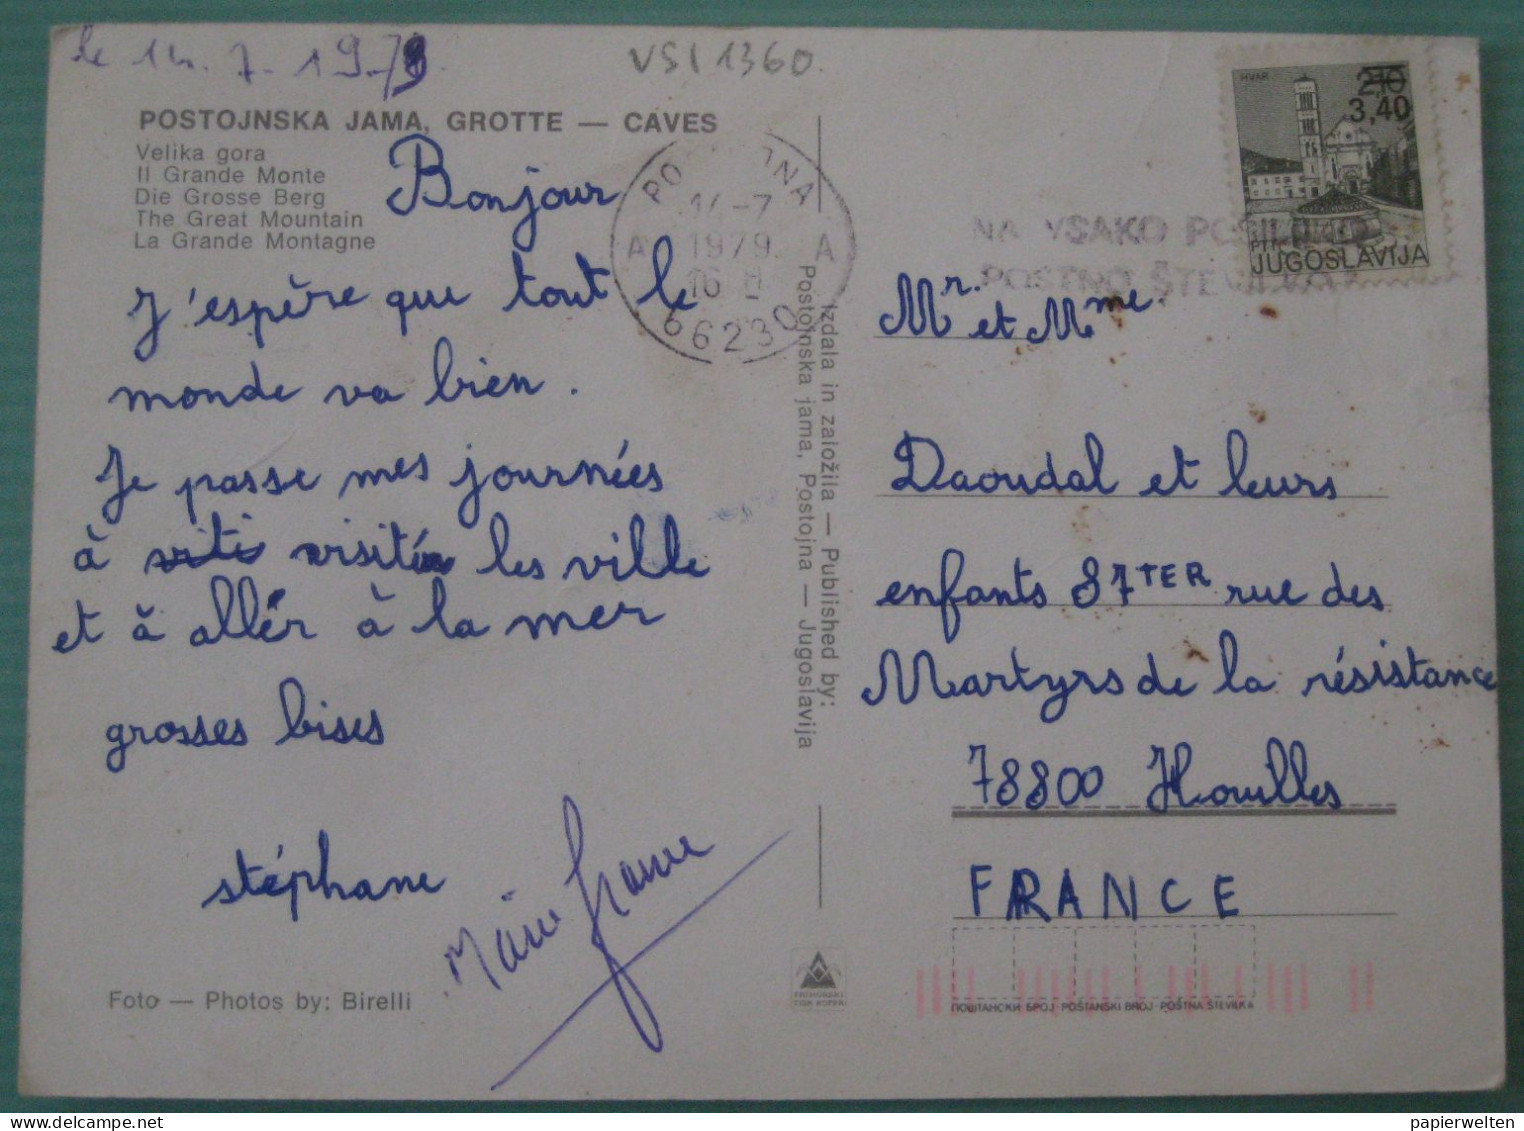 le 14.7.1979
VSI 1360
POSTOJNSKA JAMA, GROTTE — CAVES
Velika gora
Il Grande Monte
Die Grosse Berg
The Great Mountain
La Grande Montagne
Bonjour
J'espère que tout le
monde va bien.
Je passe mes journées
à visiter les ville
et à aller à la mer
grosses bises
stéphane
Marie france
Foto — Photos by: Birelli
14-7
1979
16
A A
66230
Izdala in založila — Published by:
Postojnska jama, Postojna — Jugoslavija
NA VSAKO
POSTNO
HVAR
2,10
3,40
JUGOSLAVIJA
Mr. et Mme.
Daoudal et leurs
enfants 87TER rue des
Martyrs de la résistance
78800 Houilles
FRANCE
ПОШТАНСКИ БРОЈ - POŠTANSKI BROJ - POŠTNA ŠTEVILKA
papierwelten